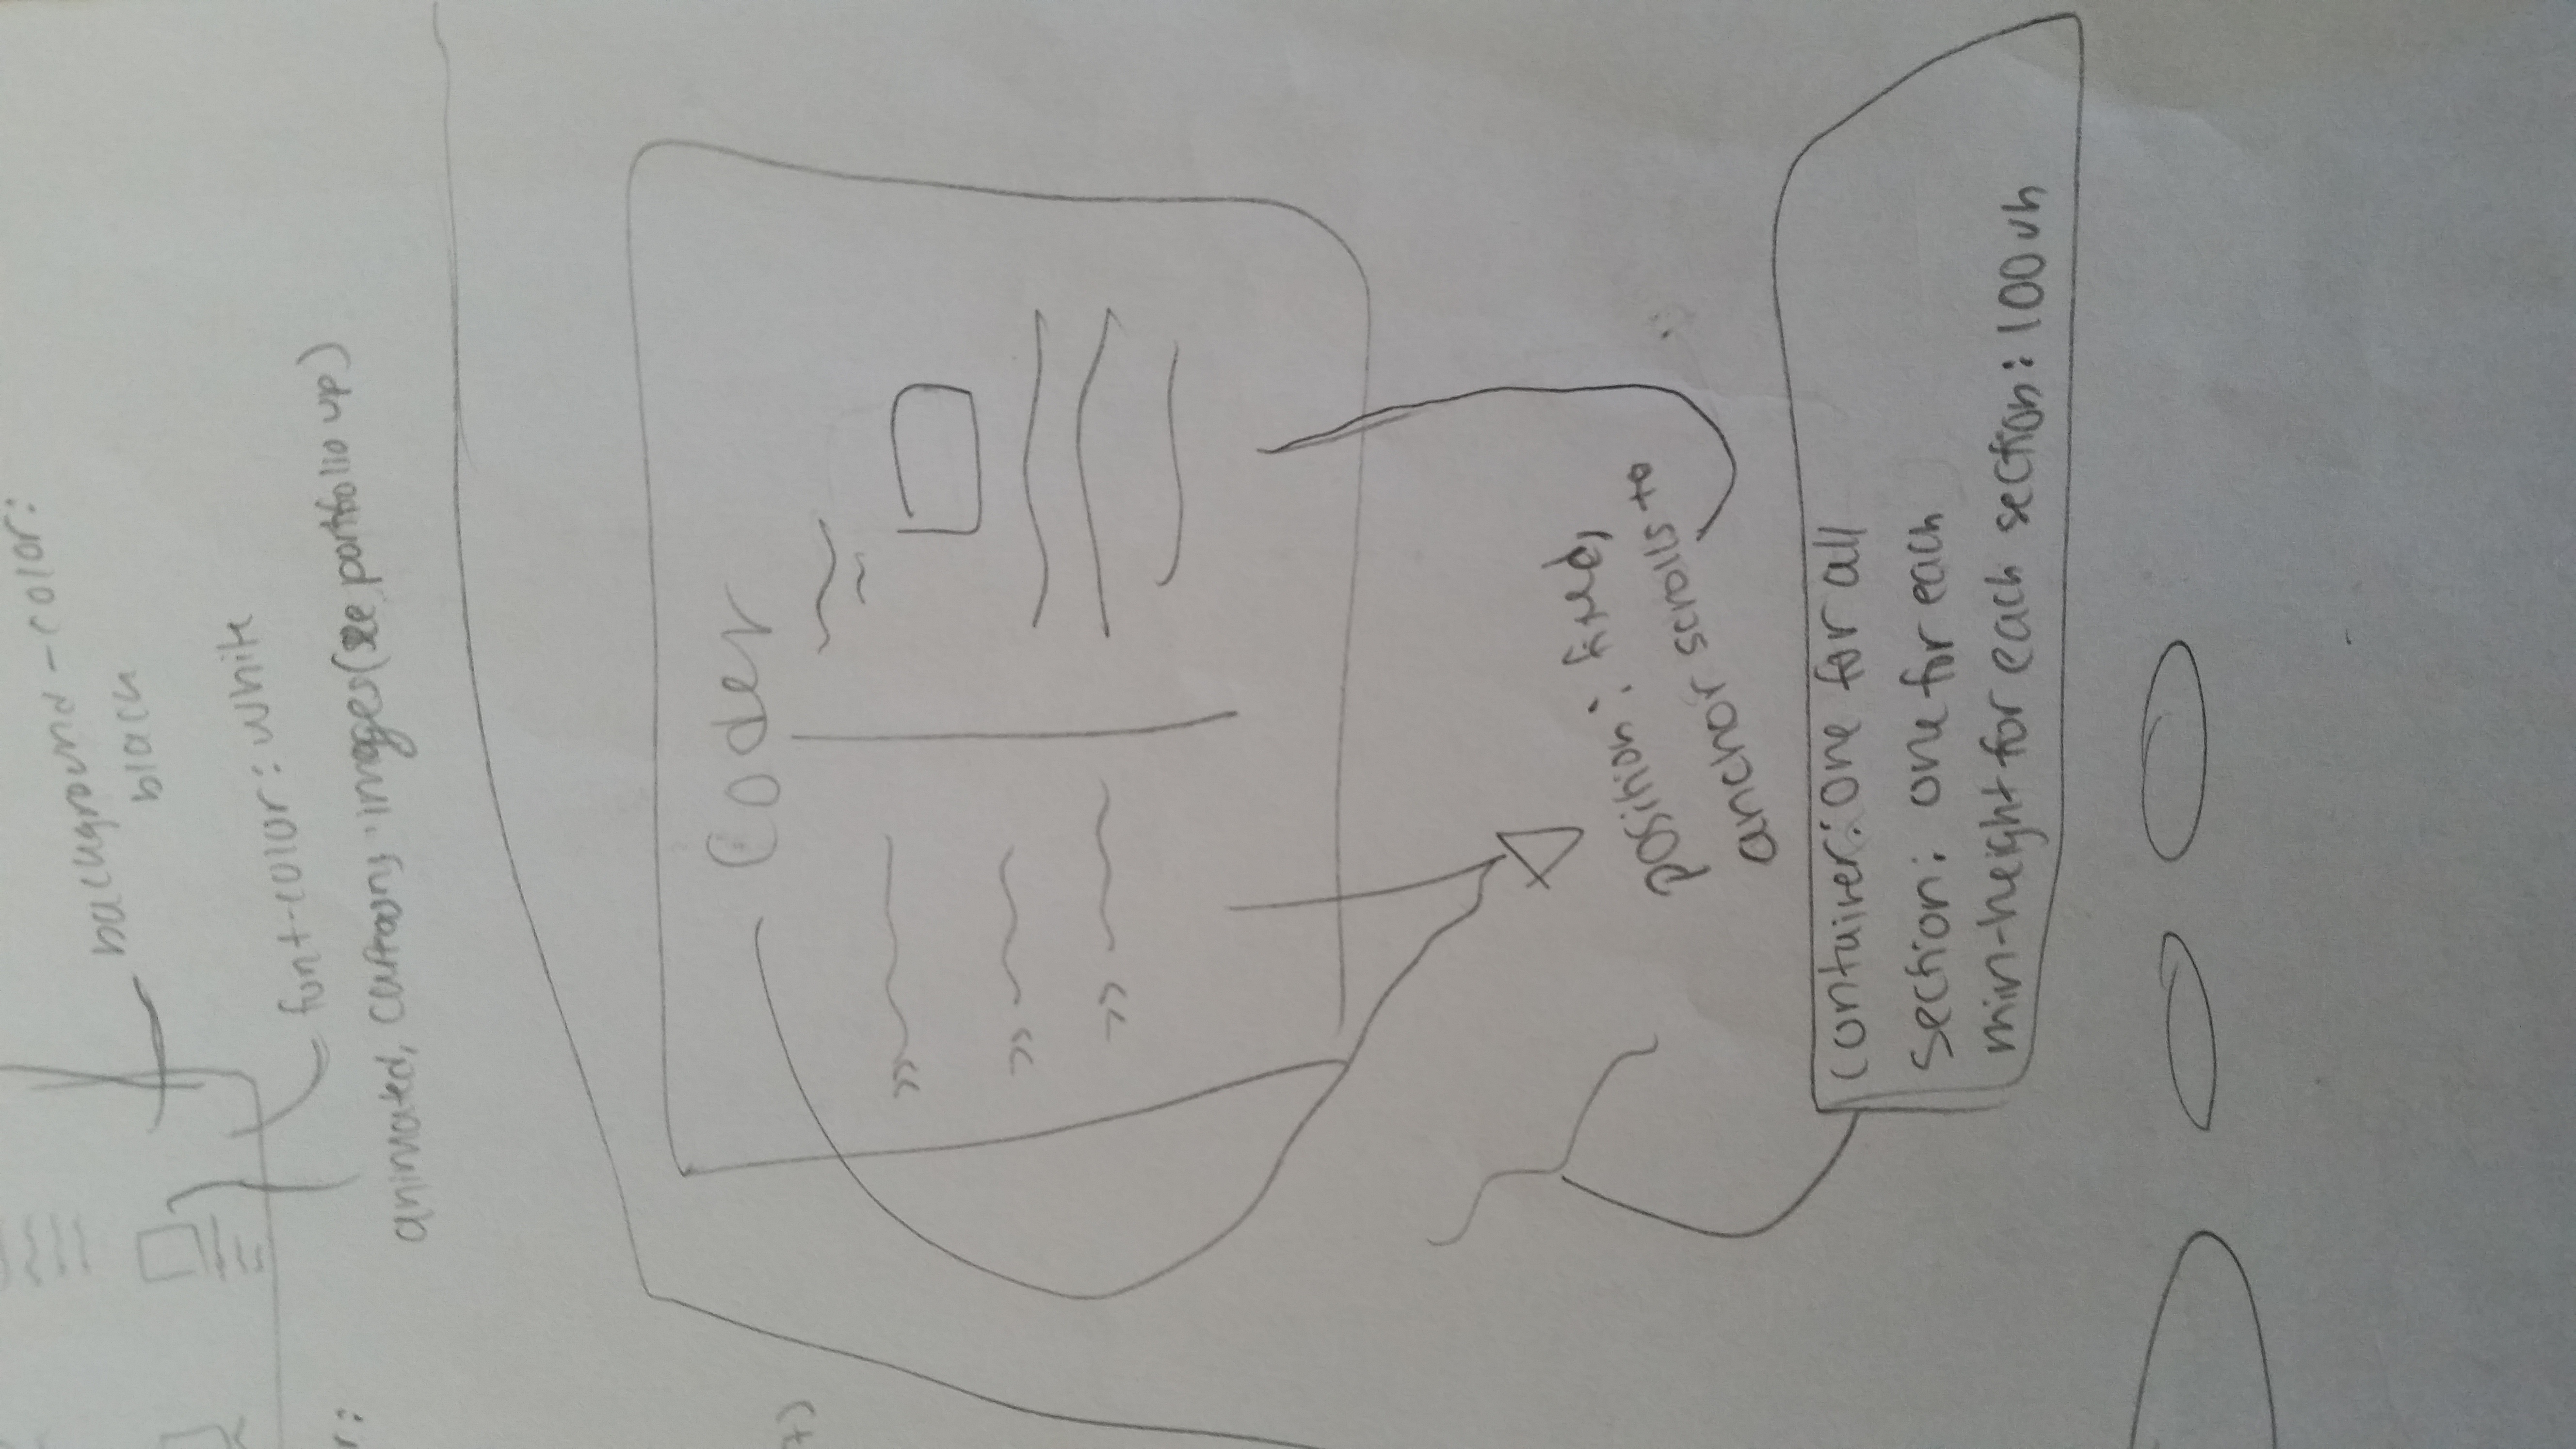 background-color:
black
font-color: white
animated, cartoony images (see portfolio up)
Coder
>>
>>
>>
position: fixed,
anchor scrolls to
container: one for all
section: one for each
min-height for each section: 100vh
r:
t)